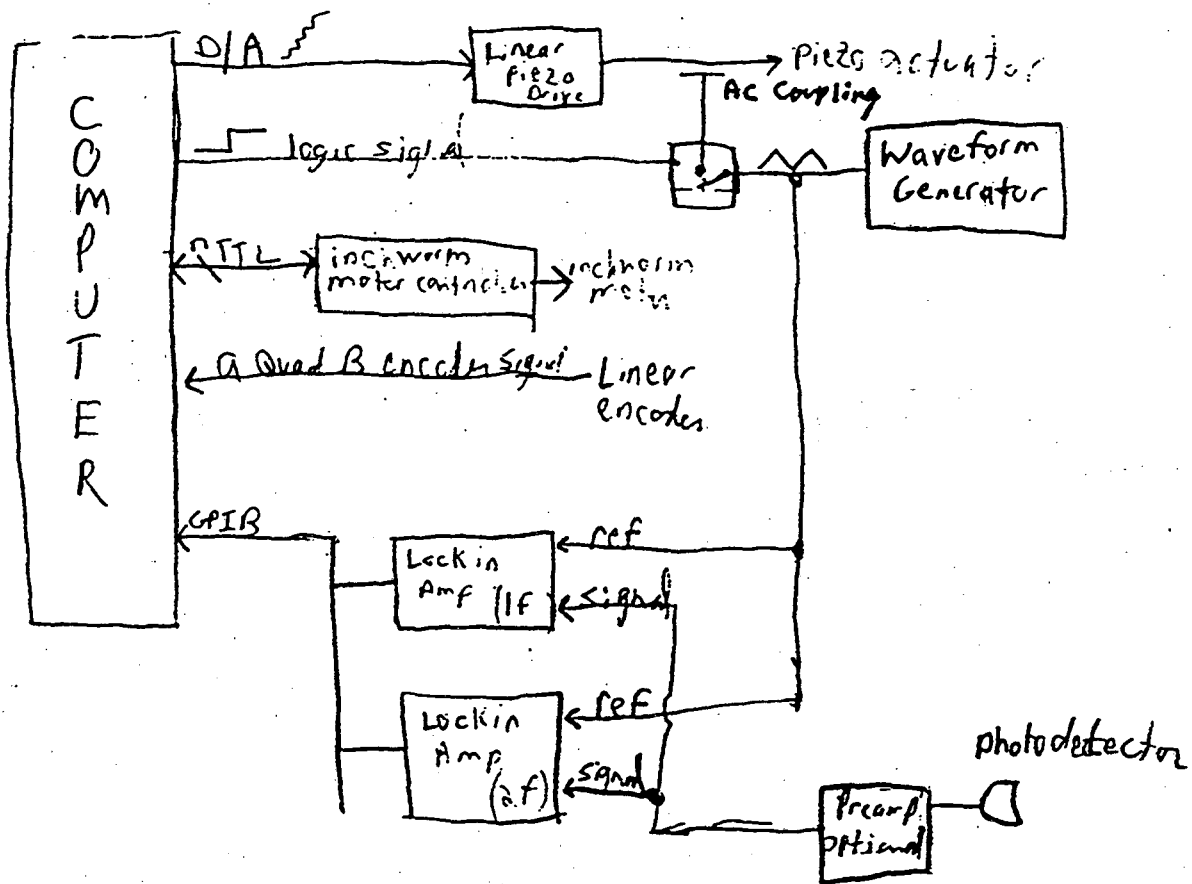 D/A
Linear
Piezo
Drive
Piezo actuator
AC Coupling
COMPUTER
logic signal
Waveform
Generator
n TTL
inchworm
motor controller
inchworm
motor
a Quad B encoder signal
Linear
encoder
GPIB
Lockin
Amp
(1f
ref
signal
Lockin
Amp
(2f)
ref
signal
photodetector
Preamp
optional